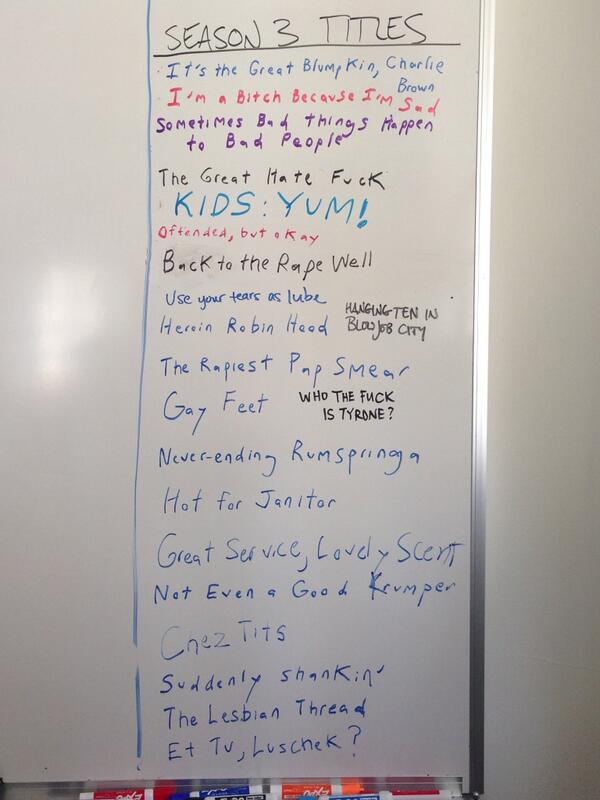 SEASON 3 TITLES
It's the Great Blumpkin, Charlie
Brown
I'm a Bitch Because I'm Sad
Sometimes Bad Things Happen
to Bad People
The Great Hate Fuck
KIDS: YUM!
Offended, but okay
Back to the Rape Well
Use your tears as lube
HANGING TEN IN
BLOWJOB CITY
Heroin Robin Hood
The Rapiest Pap Smear
Gay Feet
WHO THE FUCK
IS TYRONE?
Never-ending Rumspringa
Hot for Janitor
Great Service, Lovely Scent
Not Even a Good Krumper
Chez Tits
Suddenly Shankin'
The Lesbian Thread
Et Tu, Luschek?
EXPO
EXPO